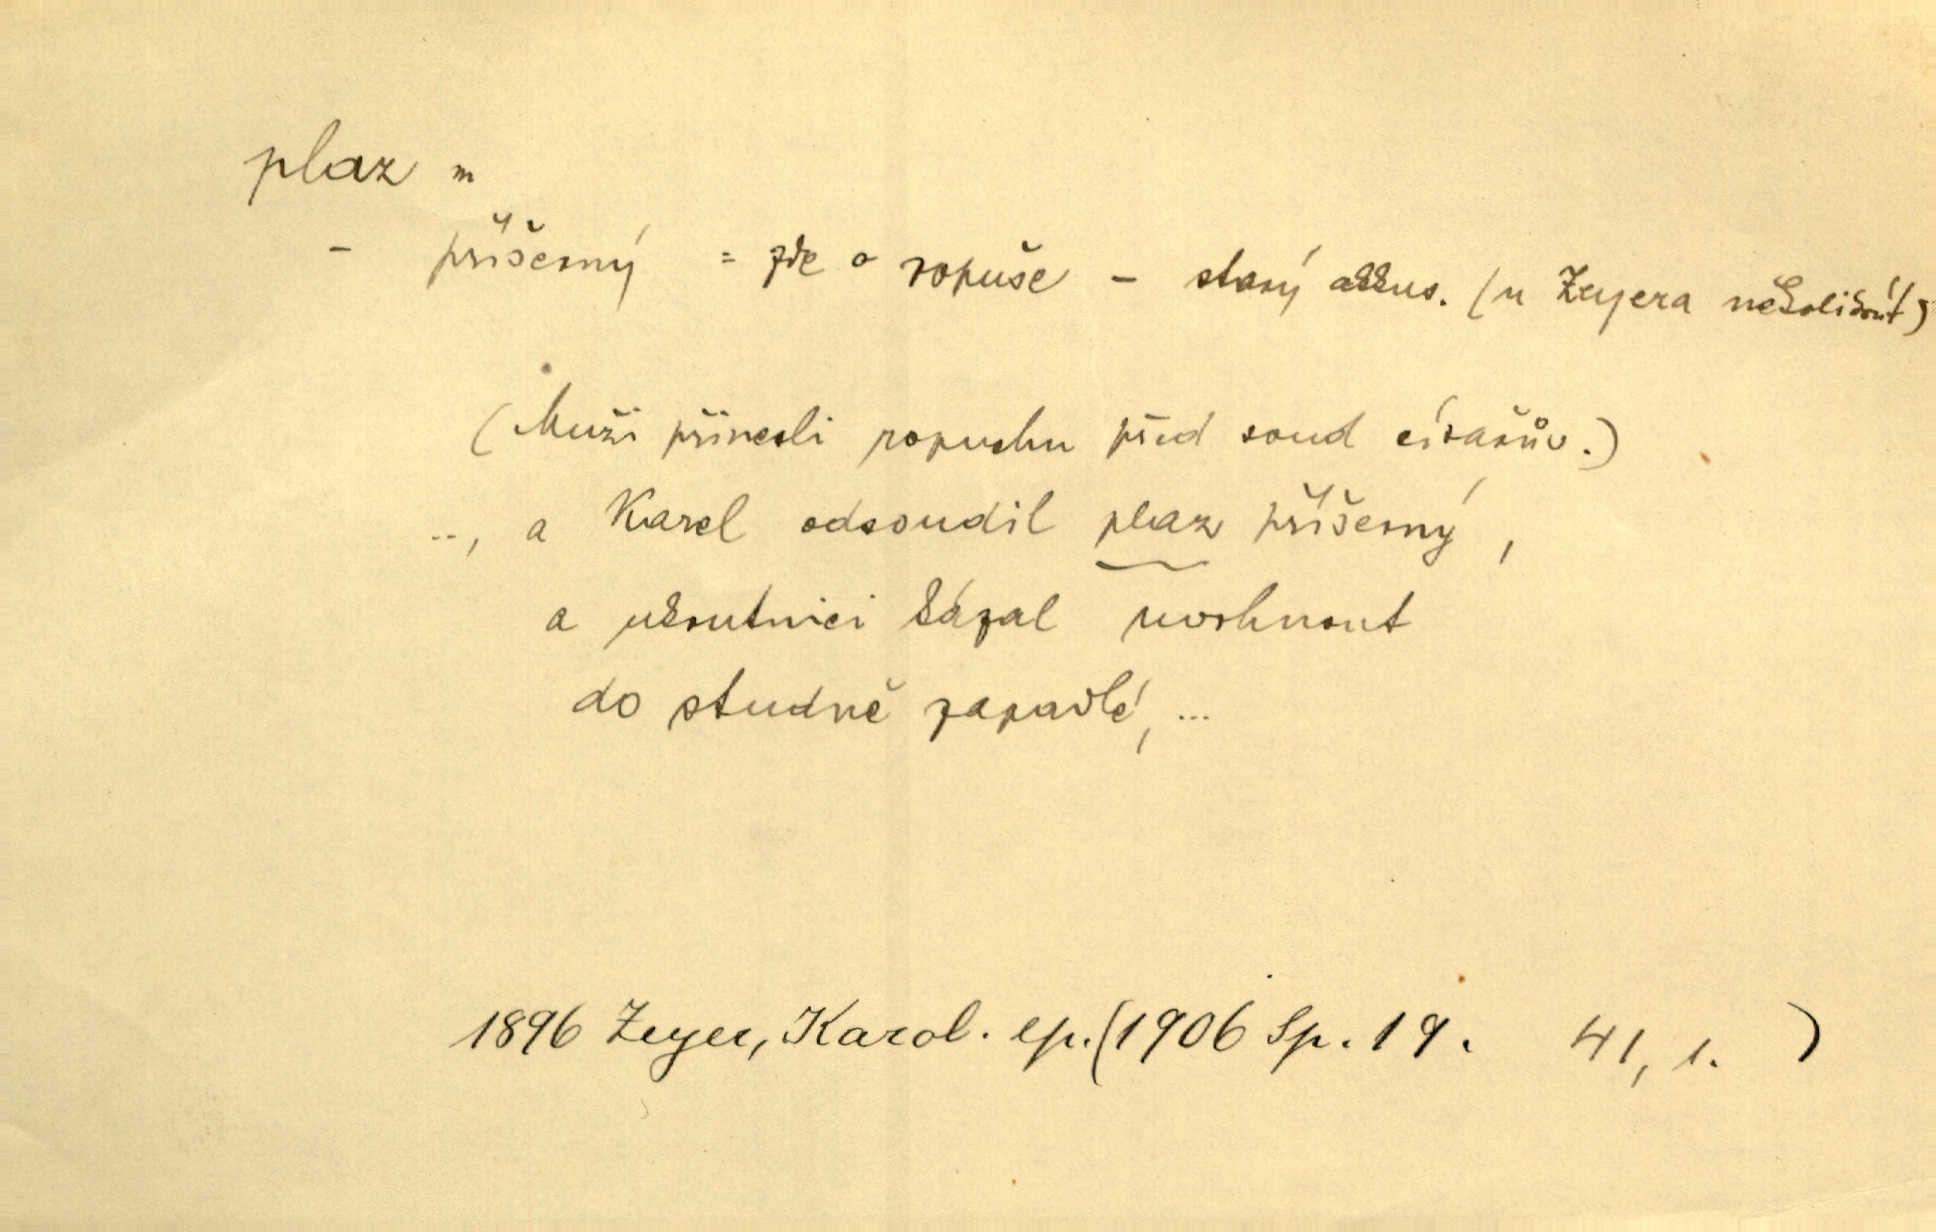 plaz m
- příšerný = zde o ropuše - starý akkus. (u Zeyera několikrát)
(Muži přinesli ropuchu před soud císařův.)
.., a Karel odsoudil plaz příšerný,
a ukrutnici kázal uvrhnout
do studně zapadlé, ...
1896 Zeyer, Karol. ep. (1906 Sp. 19. 41, 1. )